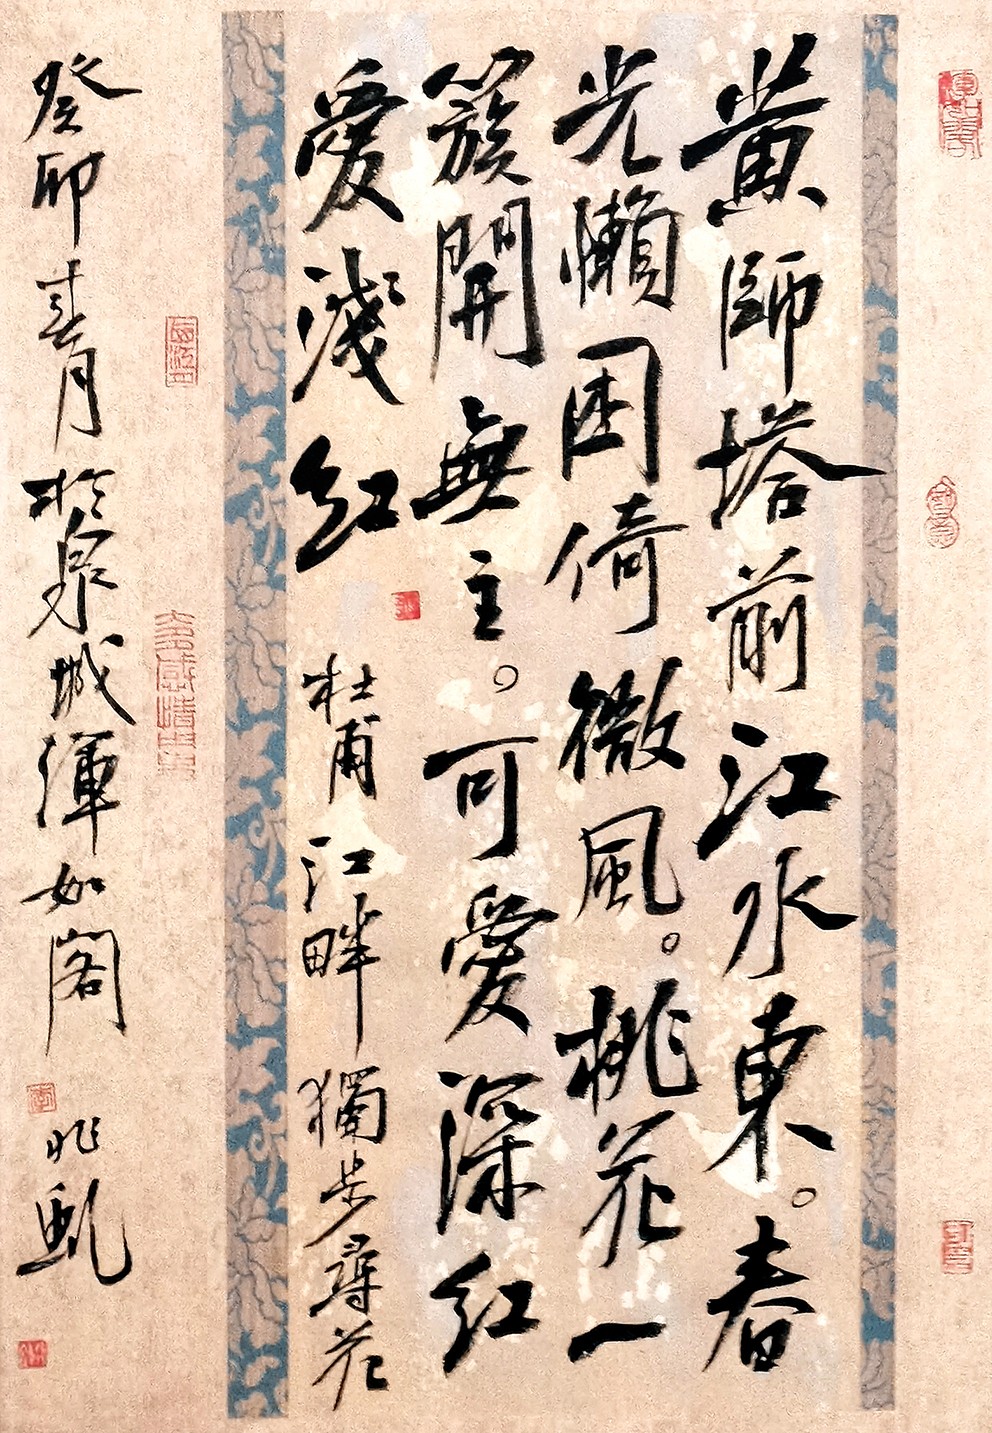 黄師塔前江水東。春
光懶困倚微風。桃花一
簇開無主。可愛深紅
愛淺紅 杜甫 江畔獨步尋花
癸卯春月於泉城渾如閣 兆